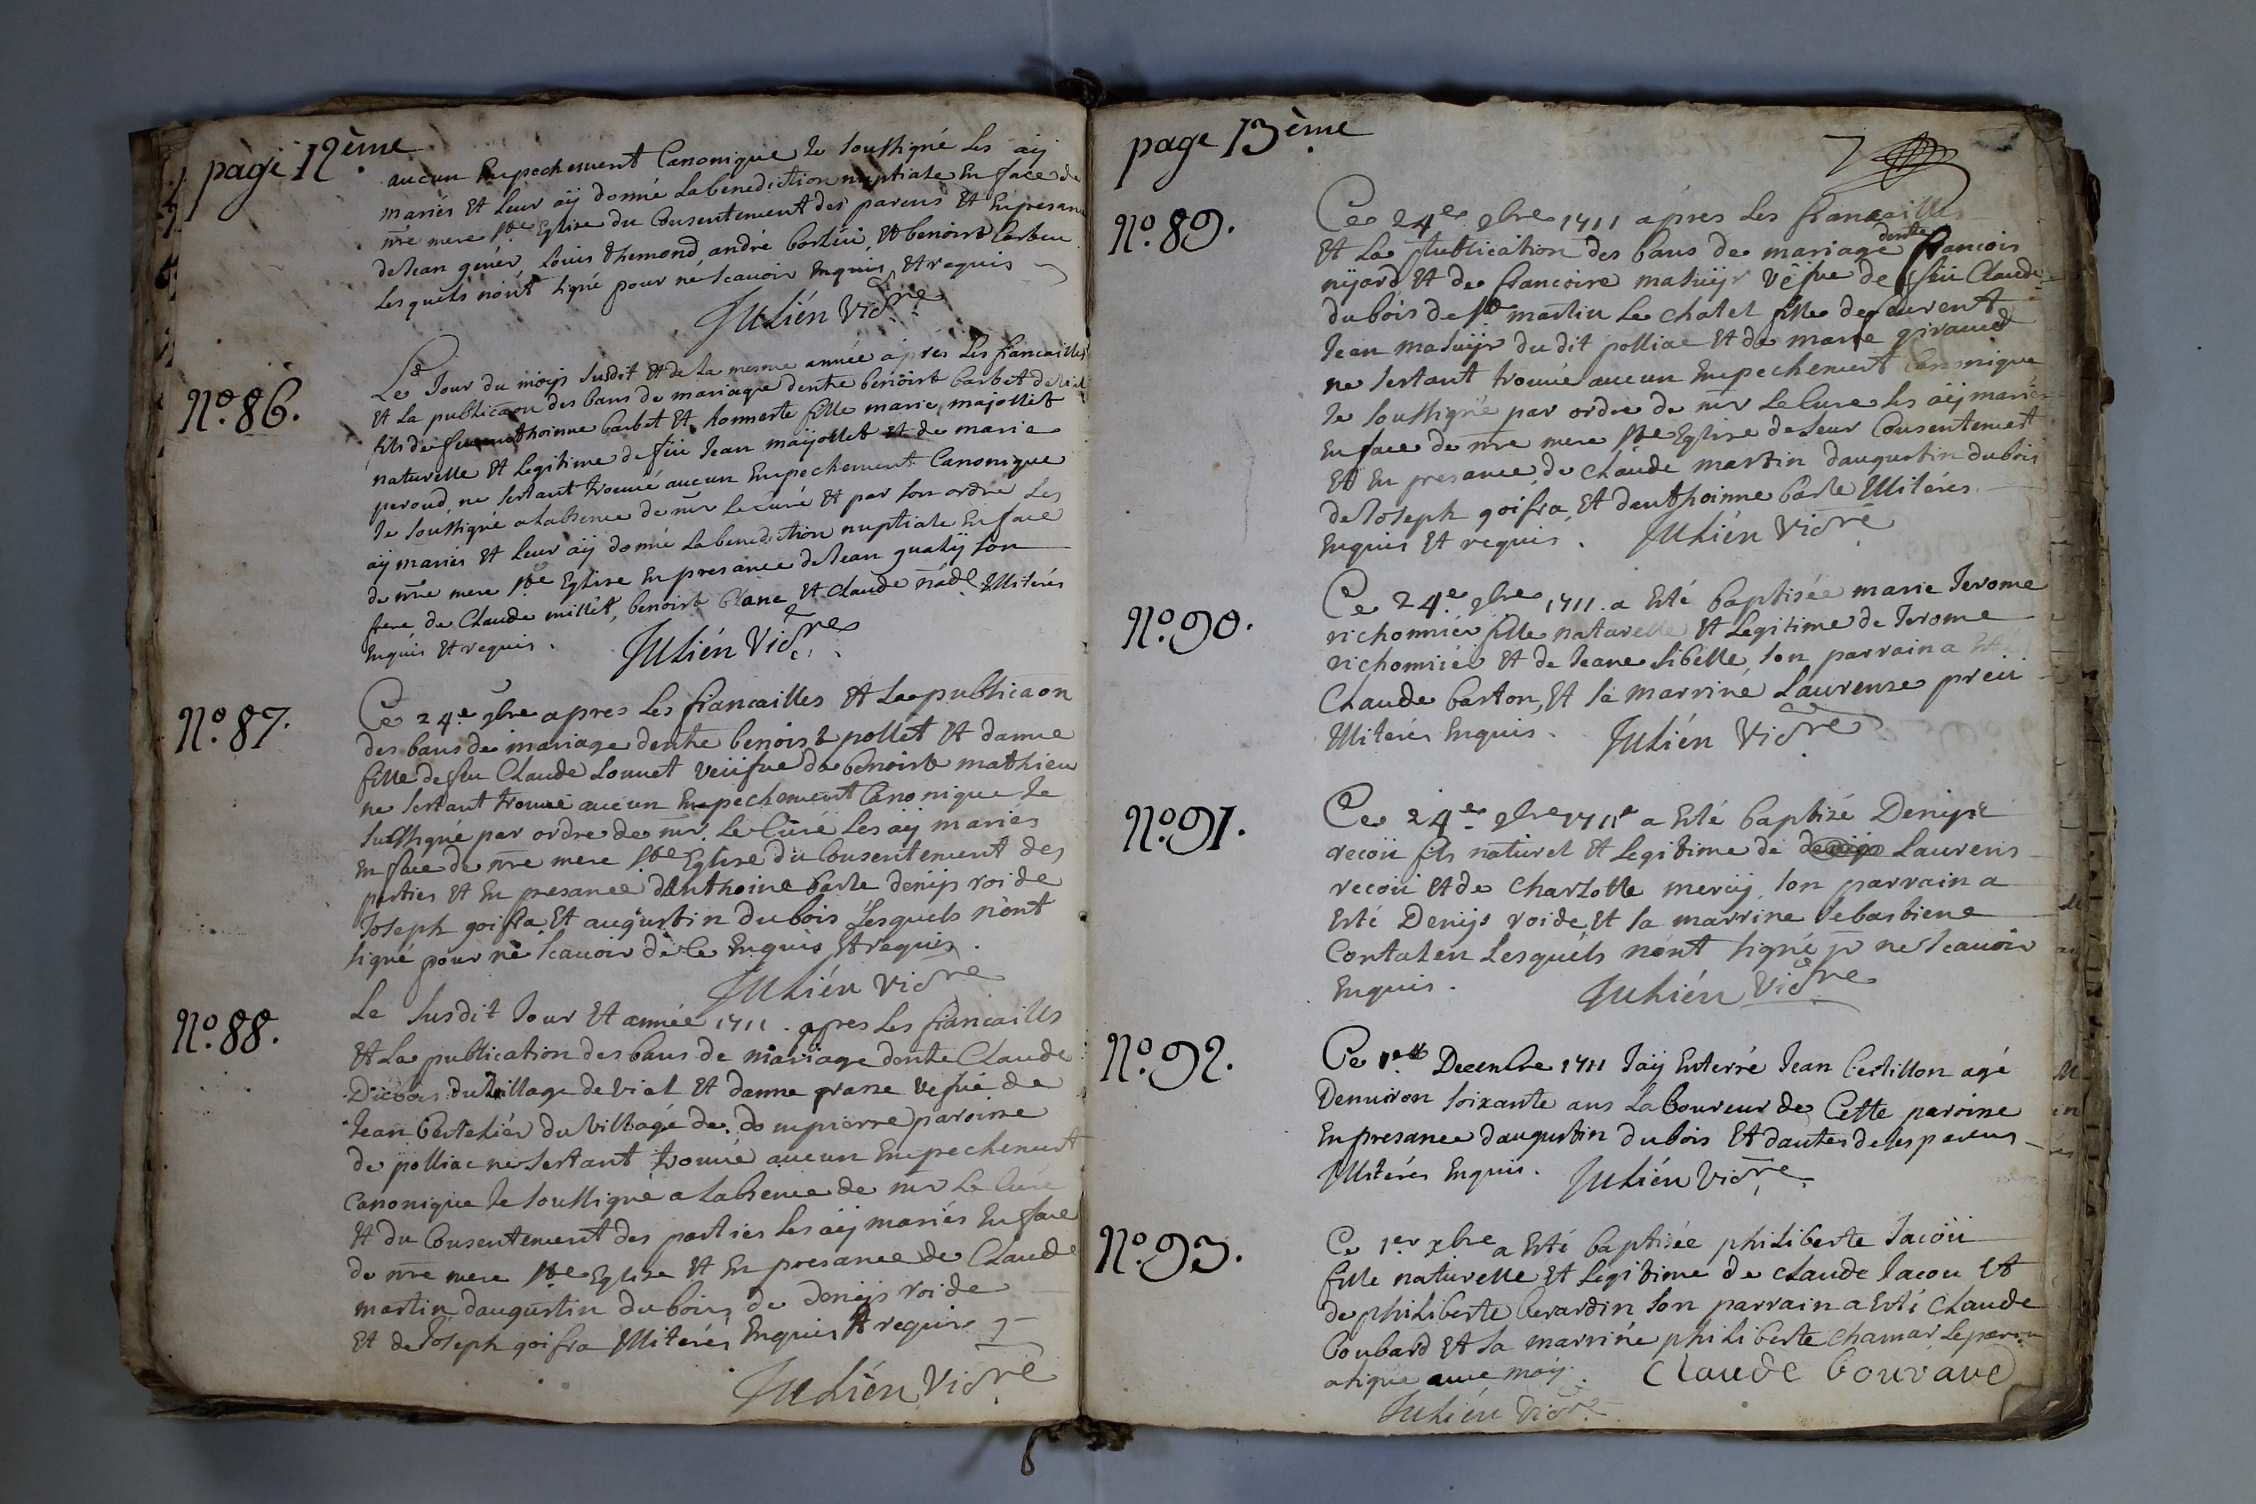 page 12ème.
aucun Empechement Canonique Je soussigné Les aÿ
mariés et Leur aÿ donné La benediction nuptiale En face de
nre mere Ste Eglise du Consentement des parens et En presance
de Jean genér, Louis themond, andré borlévi, et benoist
Lesquels n'ont signé pour ne scavoir Enquis et requis
Julién Vicre
No. 86.
Le Jour du mois susdit et de La mesme année aprés Les fiancailles
et La publicaon des bans de mariage dentre benoist barbet de
fils de feu anthoinne barbet et honneste fille marie majollet
naturelle et Legitime de feu Jean maijollet et de marie
peroud, ne sestant trouué aucun Empechement Canonique
Je soussigné a Labsence de mr Le Curé et par son ordre Les
aÿ mariés et Leur aÿ donné La benediction nuptiale En face
de nre mere Ste Eglise En presance de Jean gualÿ son
frere de Claude millét, benoist blanc et Claude Illiterés
Enquis et requis.
Julién Vicre
No. 87.
Ce 24e 9bre apres Les fiancailles et La publicaon
des bans de mariage dentre benoist pollét et danne
fille de feu Claude Lonnet veüfue de benoist mathieu
ne sestant trouué aucun Empechement Canonique Je
sussigné par ordre de mr. Le Curé Les aÿ mariés
En face de nre mere Ste Eglise du Consentement des
parties et En presance danthoine barle denijs roide
Joseph goifra et augustin dubois Lesquels n'ont
signé pour ne scauoir de Ce Enquis et requis.
Julién Vicre
No. 88.
Le susdit Jour et année 1711. apres Les fiancailles
et La publication des bans de mariage dentre Claude
Dubois du Village de Vial et danne prane vefue de
Jean bertehier du Village de dompierre paroisse
de polliac ne sestant trouué aucun Empechement
Canonique Je soussigné a Labsence de mr Le Curé
et du Consentement des parties Les aÿ mariés En face
de nre mere Ste Eglise et En presance de Claude
martin daugustin dubois de denijs roide
et de Joseph goifra Illiterés Enquis et requis
Julién Vicre
page 13ème.
7
No. 89.
Ce 24e 9bre 1711 aprés Les fiancailles
et La publication des bans de mariage dentre francois
nÿord et de francoise masuÿr vefue de feu Claude
dubois de St martin Le chatel fille de Laurent
Jean masuÿr du dit polliac et de marie giraud
ne sestant trouué aucun Empechement Canonique
Je soussigné par ordre de mr Le Cure Les aÿ mariés
En face de nre mere Ste Eglise de Leur Consentement
Et En presance de Claude martin daugustin dubois
de Joseph goifra, et danthoinne barle Illiterés
Enquis et requis. Julién Vicre
No. 90.
Ce 24e. 9bre 1711. a Esté baptisée marie Jerome
richonniér fille naturelle et Legitime de Jerome
richonniér et de Jeane sibélle, son parrain a Esté
Claude barton, et sa marrine Laurense preü
Illiterés Enquis. Julién Vicre
No. 91.
Ce 24e 9bre 1711 a Esté baptizé Denijs
recoü fils naturel et Legitime de denijs Laurens
recoü et de Charlotte merüj, son parrain a
Esté Denijs roide et sa marrine sebastiene
Contalen Lesquéls nont signé pr ne scauoir
Enquis. Julién Vicre
No. 92.
Ce 1er Decembre 1711 Jaÿ Enterré Jean Certillon agé
Denuiron soixante ans Laboureur de Cette paroisse
En presance daugustin dubois et dautes de ses parens
Illiterés Enquis. Julién Vicre
No. 93.
Ce 1er xbre a Esté baptisée philiberte Jacoü
fille naturelle et Legitime de Claude Jacou et
de philiberte berardin son parrain a Esté Claude
boubard et sa marrine philiberte Chamar Le parrain
a signe auec moÿ. Claude bouvaud
Julién Vicre